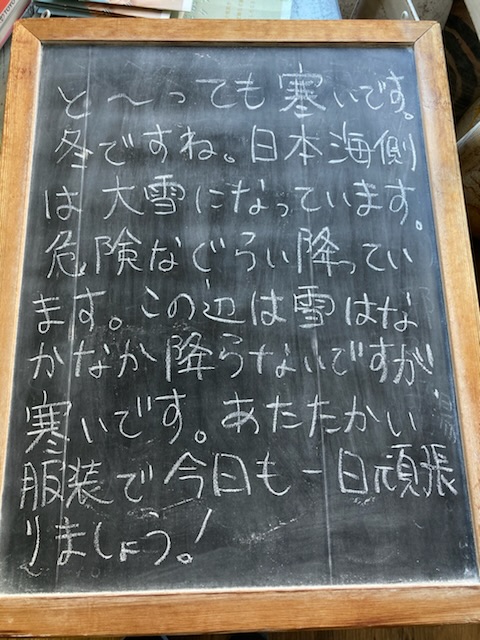 と〜っても寒いです。
冬ですね。日本海側
は大雪になっています。
危険なぐらい降ってい
ます。この辺は雪はな
かなか降らないですが
寒いです。あたたかい
服装で今日も一日頑張
りましょう！